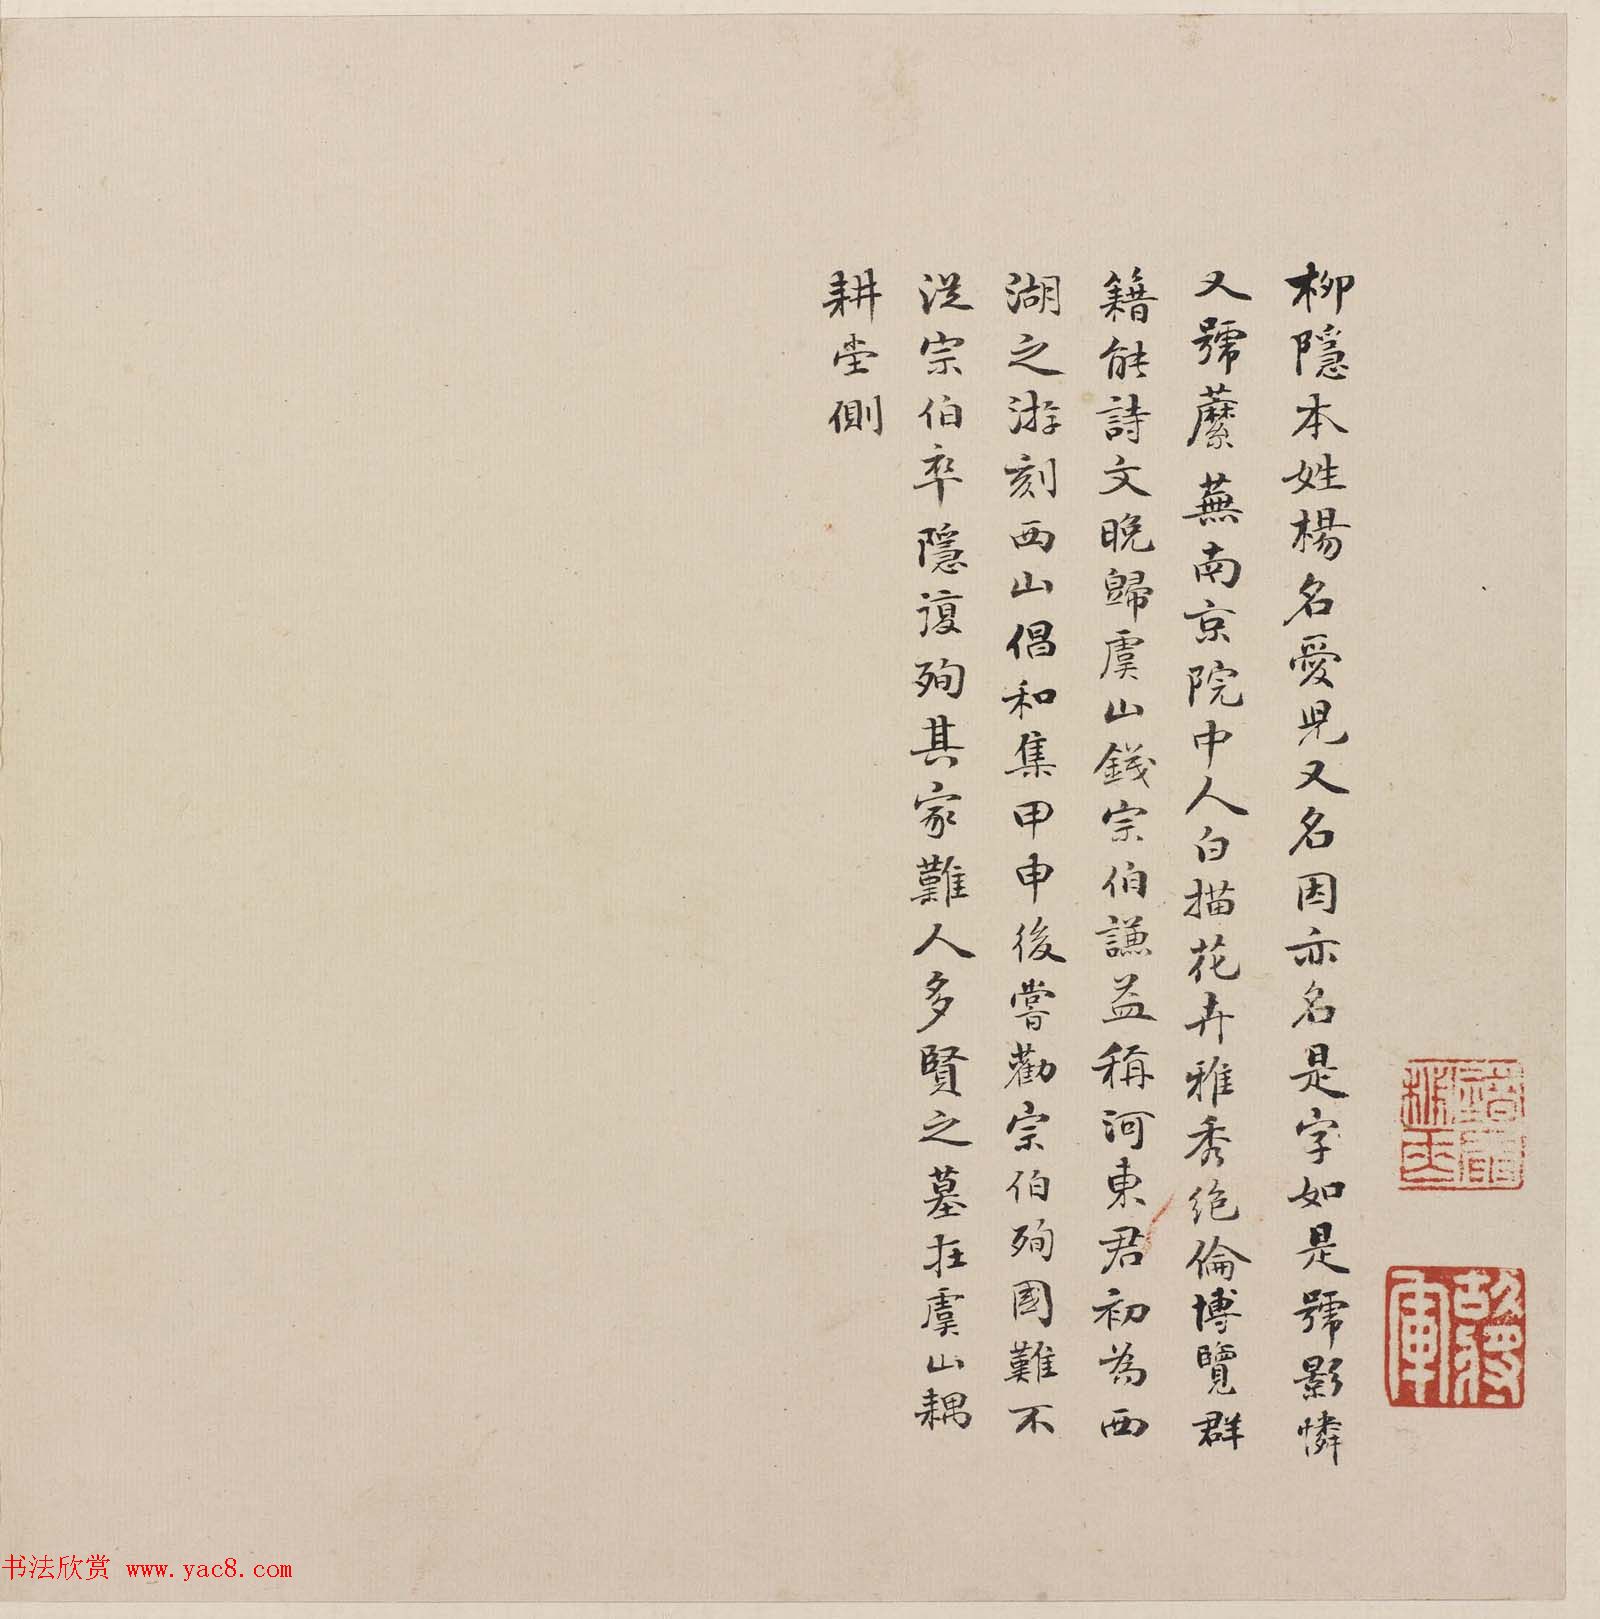 柳隱本姓楊名愛兒又名因亦名是字如是號影憐
又號蘼蕪南京院中人白描花卉雅秀絕倫博覽群
籍能詩文晚歸虞山錢宗伯謙益稱河東君初為西
湖之游刻西山倡和集甲申後嘗勸宗伯殉國難不
從宗伯卒隱復殉其家難人多賢之墓在虞山耦
耕堂側
书法欣赏 www.yac8.com